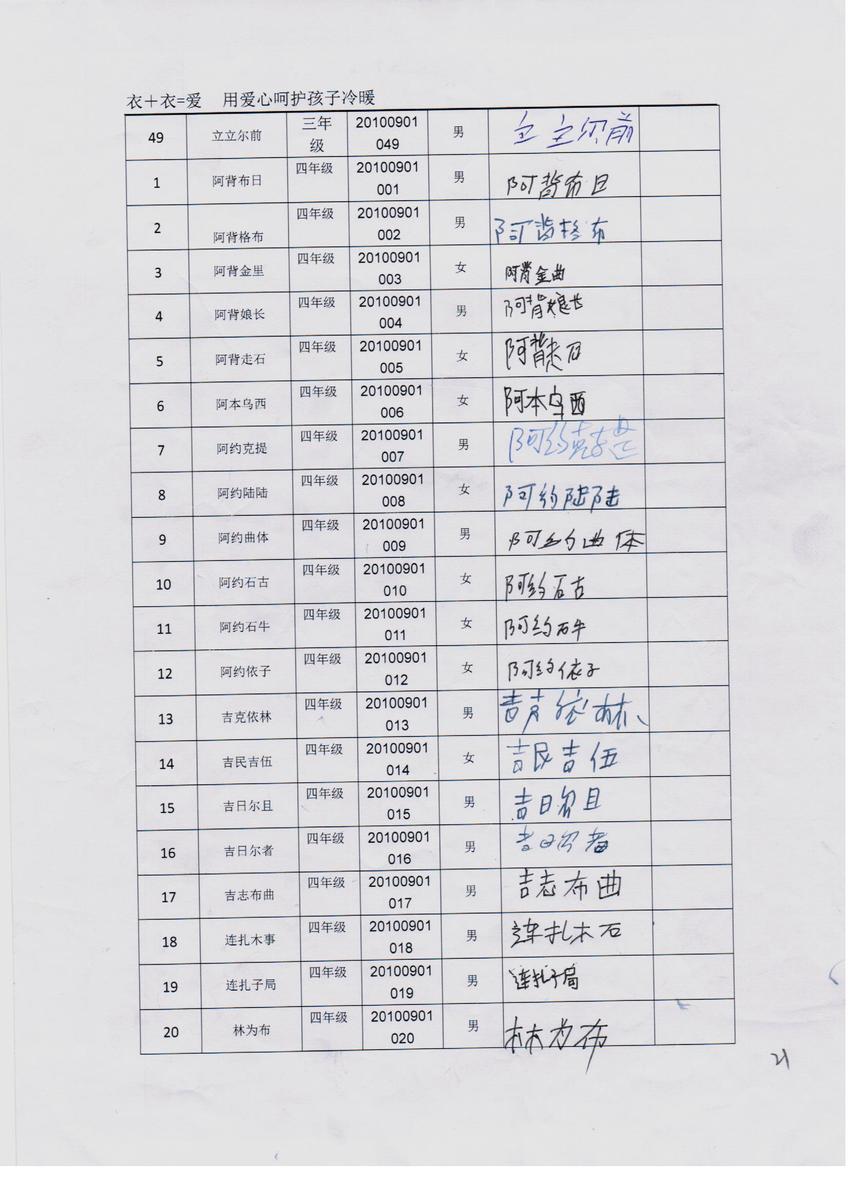 衣+衣=爱 用爱心呵护孩子冷暖
49 立立尔前 三年级 20100901049 男 立立尔前
1 阿背布日 四年级 20100901001 男 阿背布日
2 阿背格布 四年级 20100901002 男 阿背格布
3 阿背金里 四年级 20100901003 女 阿背金曲
4 阿背娘长 四年级 20100901004 男 阿背娘长
5 阿背走石 四年级 20100901005 女 阿背走石
6 阿本乌西 四年级 20100901006 女 阿本乌西
7 阿约克提 四年级 20100901007 男 阿约克提
8 阿约陆陆 四年级 20100901008 女 阿约陆陆
9 阿约曲体 四年级 20100901009 男 阿约曲体
10 阿约石古 四年级 20100901010 女 阿约石古
11 阿约石牛 四年级 20100901011 女 阿约石牛
12 阿约依子 四年级 20100901012 女 阿约依子
13 吉克依林 四年级 20100901013 男 吉克依林
14 吉民吉伍 四年级 20100901014 女 吉民吉伍
15 吉日尔且 四年级 20100901015 男 吉日尔且
16 吉日尔者 四年级 20100901016 男 吉日尔者
17 吉志布曲 四年级 20100901017 男 吉志布曲
18 连扎木事 四年级 20100901018 男 连扎木石
19 连扎子局 四年级 20100901019 男 连扎子局
20 林为布 四年级 20100901020 男 林为布
21